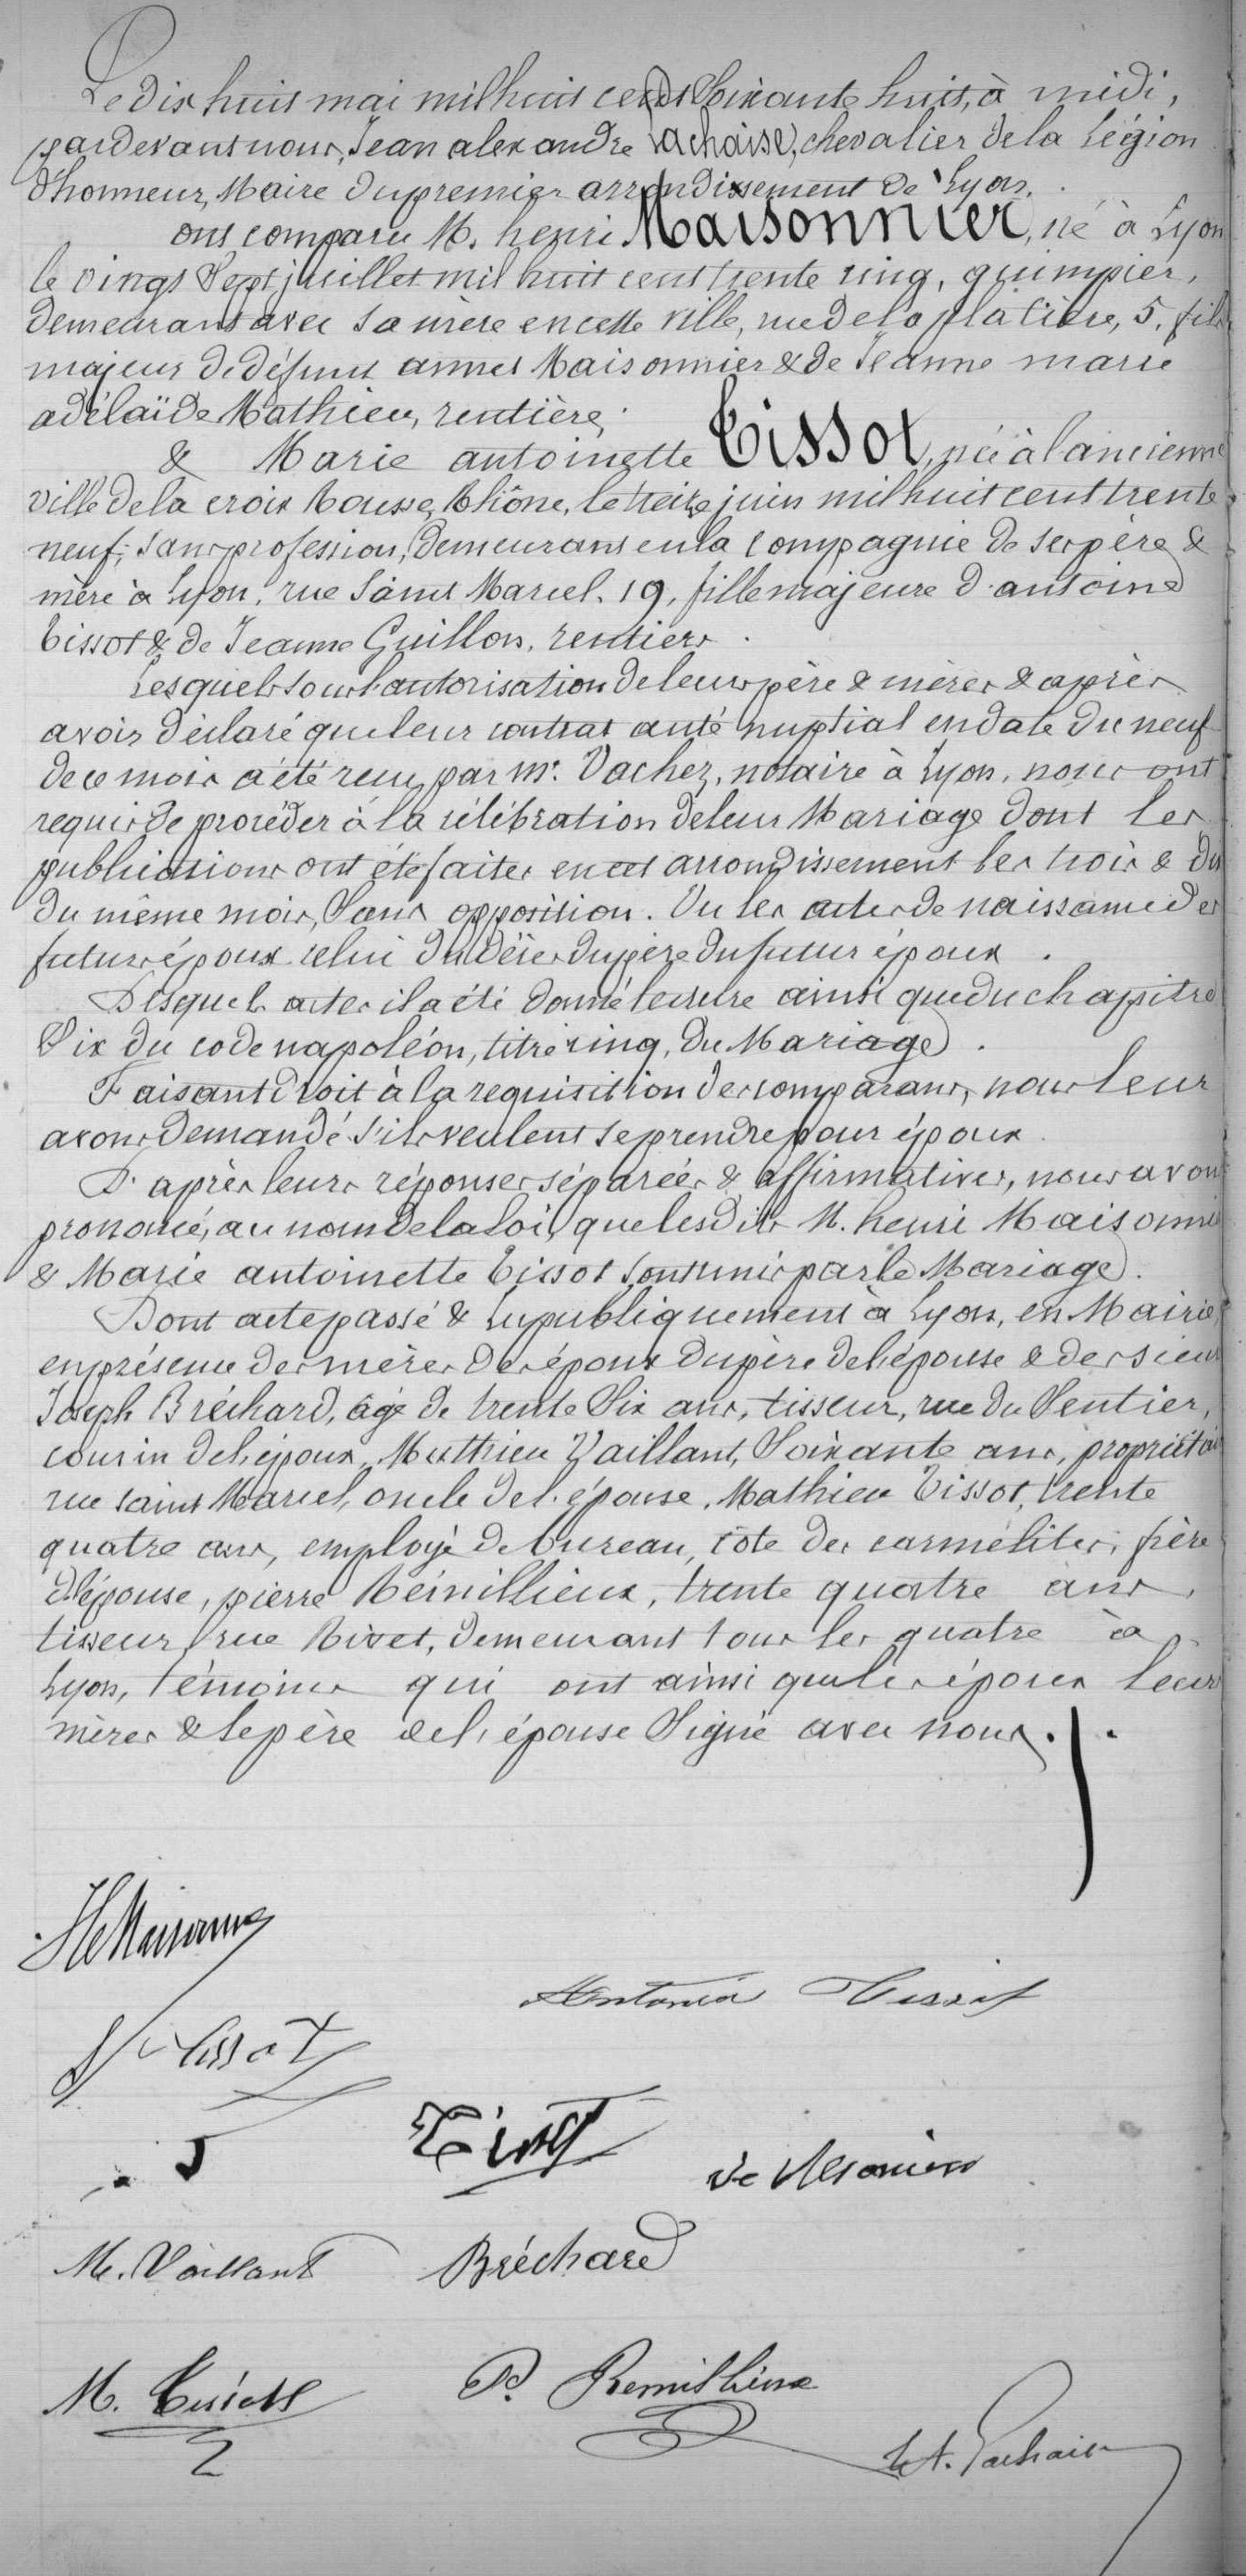 Le dix huit mai mil huit cent Soixante huit, à midi,
pardevant nous, Jean alexandre Lachaise, chevalier de la Légion
d'honneur, Maire du premier arrondissement de Lyon,
ont comparu M. henri Maisonnier, né à Lyon
le vingt Sept juillet mil huit cent trente cinq, guimpier,
demeurant avec sa mère en cette ville, rue de la platière, 5, fils
majeur de défunt annet Maisonnier & de Jeanne marie
adélaïde Mathieu, rentière;
& Marie antoinette Tissot, née à l'ancienne
ville de la croix Rousse, Rhône, le treize juin mil huit cent trente
neuf, sans profession, demeurant en la compagnie de ses père &
mère à Lyon, rue Saint Marcel, 19, fille majeure d'antoine
Tissot & de Jeanne Guillon, rentiers.
Lesquels sous l'autorisation de leurs père & mères & après
avoir déclaré que leur contrat anté nuptial en date du neuf
de ce mois a été reçu par Me. Vachez, notaire à Lyon, nous ont
requis de procéder à la célébration de leur Mariage dont les
publications ont été faites en cet arrondissement les trois & dix
du même mois, Sans opposition. Vu les actes de naissance des
futurs époux celui du décès du père du futur époux.
Desquels actes il a été donné lecture ainsi que du chapitre
Six du code napoléon, titre cinq, du Mariage.
Faisant droit à la requisition des comparans, nous leur
avons demandé s'ils veulent se prendre pour époux.
D'après leurs réponses séparées & affirmatives, nous avons
prononcé, au nom de la loi, que lesdits M. henri Maisonnier
& Marie antoinette Tissot sont unis par le Mariage.
Dont acte passé & lu publiquement à Lyon, en Mairie,
en présence des mères des époux du père de l'épouse & des sieurs
Joseph Bréchard, âgé de trente Six ans, tisseur, rue du Sentier,
cousin de l'époux, Matthieu Vaillant, Soixante ans, propriétaire
rue saint Marcel, oncle de l'épouse, Mathieu Tissot, trente
quatre ans, employé de bureau, côte des carmélites, frère
d'épouse, pierre Rémillieux, trente quatre ans,
tisseur, rue Rivet, demeurant tous les quatre à
Lyon, témoins qui ont ainsi que les époux leurs
mères & le père de l'épouse Signé avec nous.
Antonia Tissot
Tissot
Tissot
Ve
M. Vaillant Bréchard
M. Tissot P. Remillieux
Lachaise